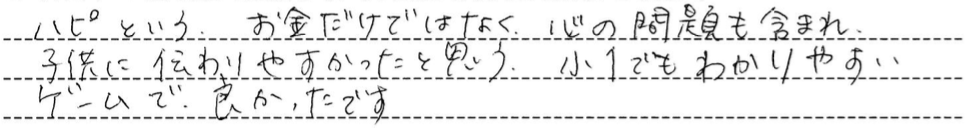 ハピという、お金だけではなく、心の問題も含まれ、
子供に伝わりやすかったと思う。小1でもわかりやすい
ゲームで、良かったです